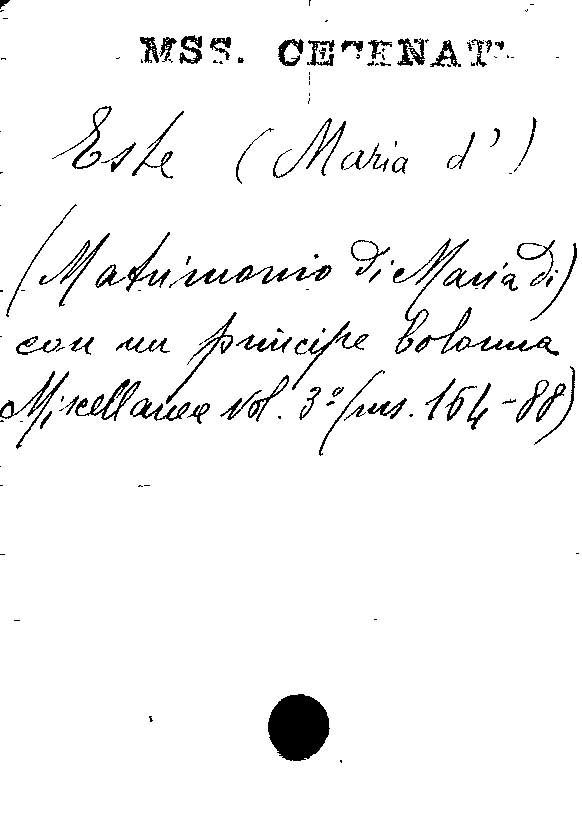 MSS. CESENATI
Este (Maria d')
(Matrimonio di Maria di)
con un principe Colonna
Miscellanea vol. 3º (ms. 164-88)